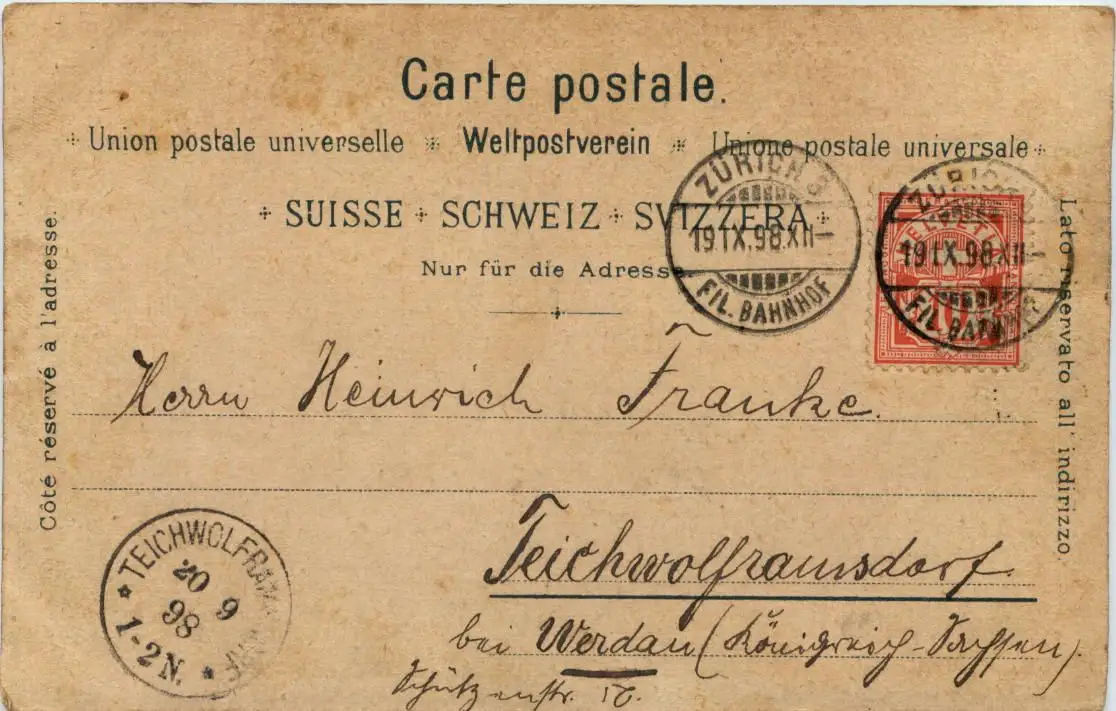 Carte postale.
Union postale universelle Weltpostverein Unione postale universale
SUISSE SCHWEIZ SVIZZERA
Nur für die Adresse
Côté réservé à l'adresse.
Lato riservato all' indirizzo.
ZÜRICH 3
19.IX.98.XII-
FIL. BAHNHOF
ZÜRICH
19.IX.98.XII-
FIL. BAHNHOF
HELVETIA
10
Herrn Heinrich Franke.
Teichwolframsdorf.
bei Werdau (Königreich-Sachsen).
Schützenstr.
TEICHWOLFRAMSDORF
20 9
98
1-2N.